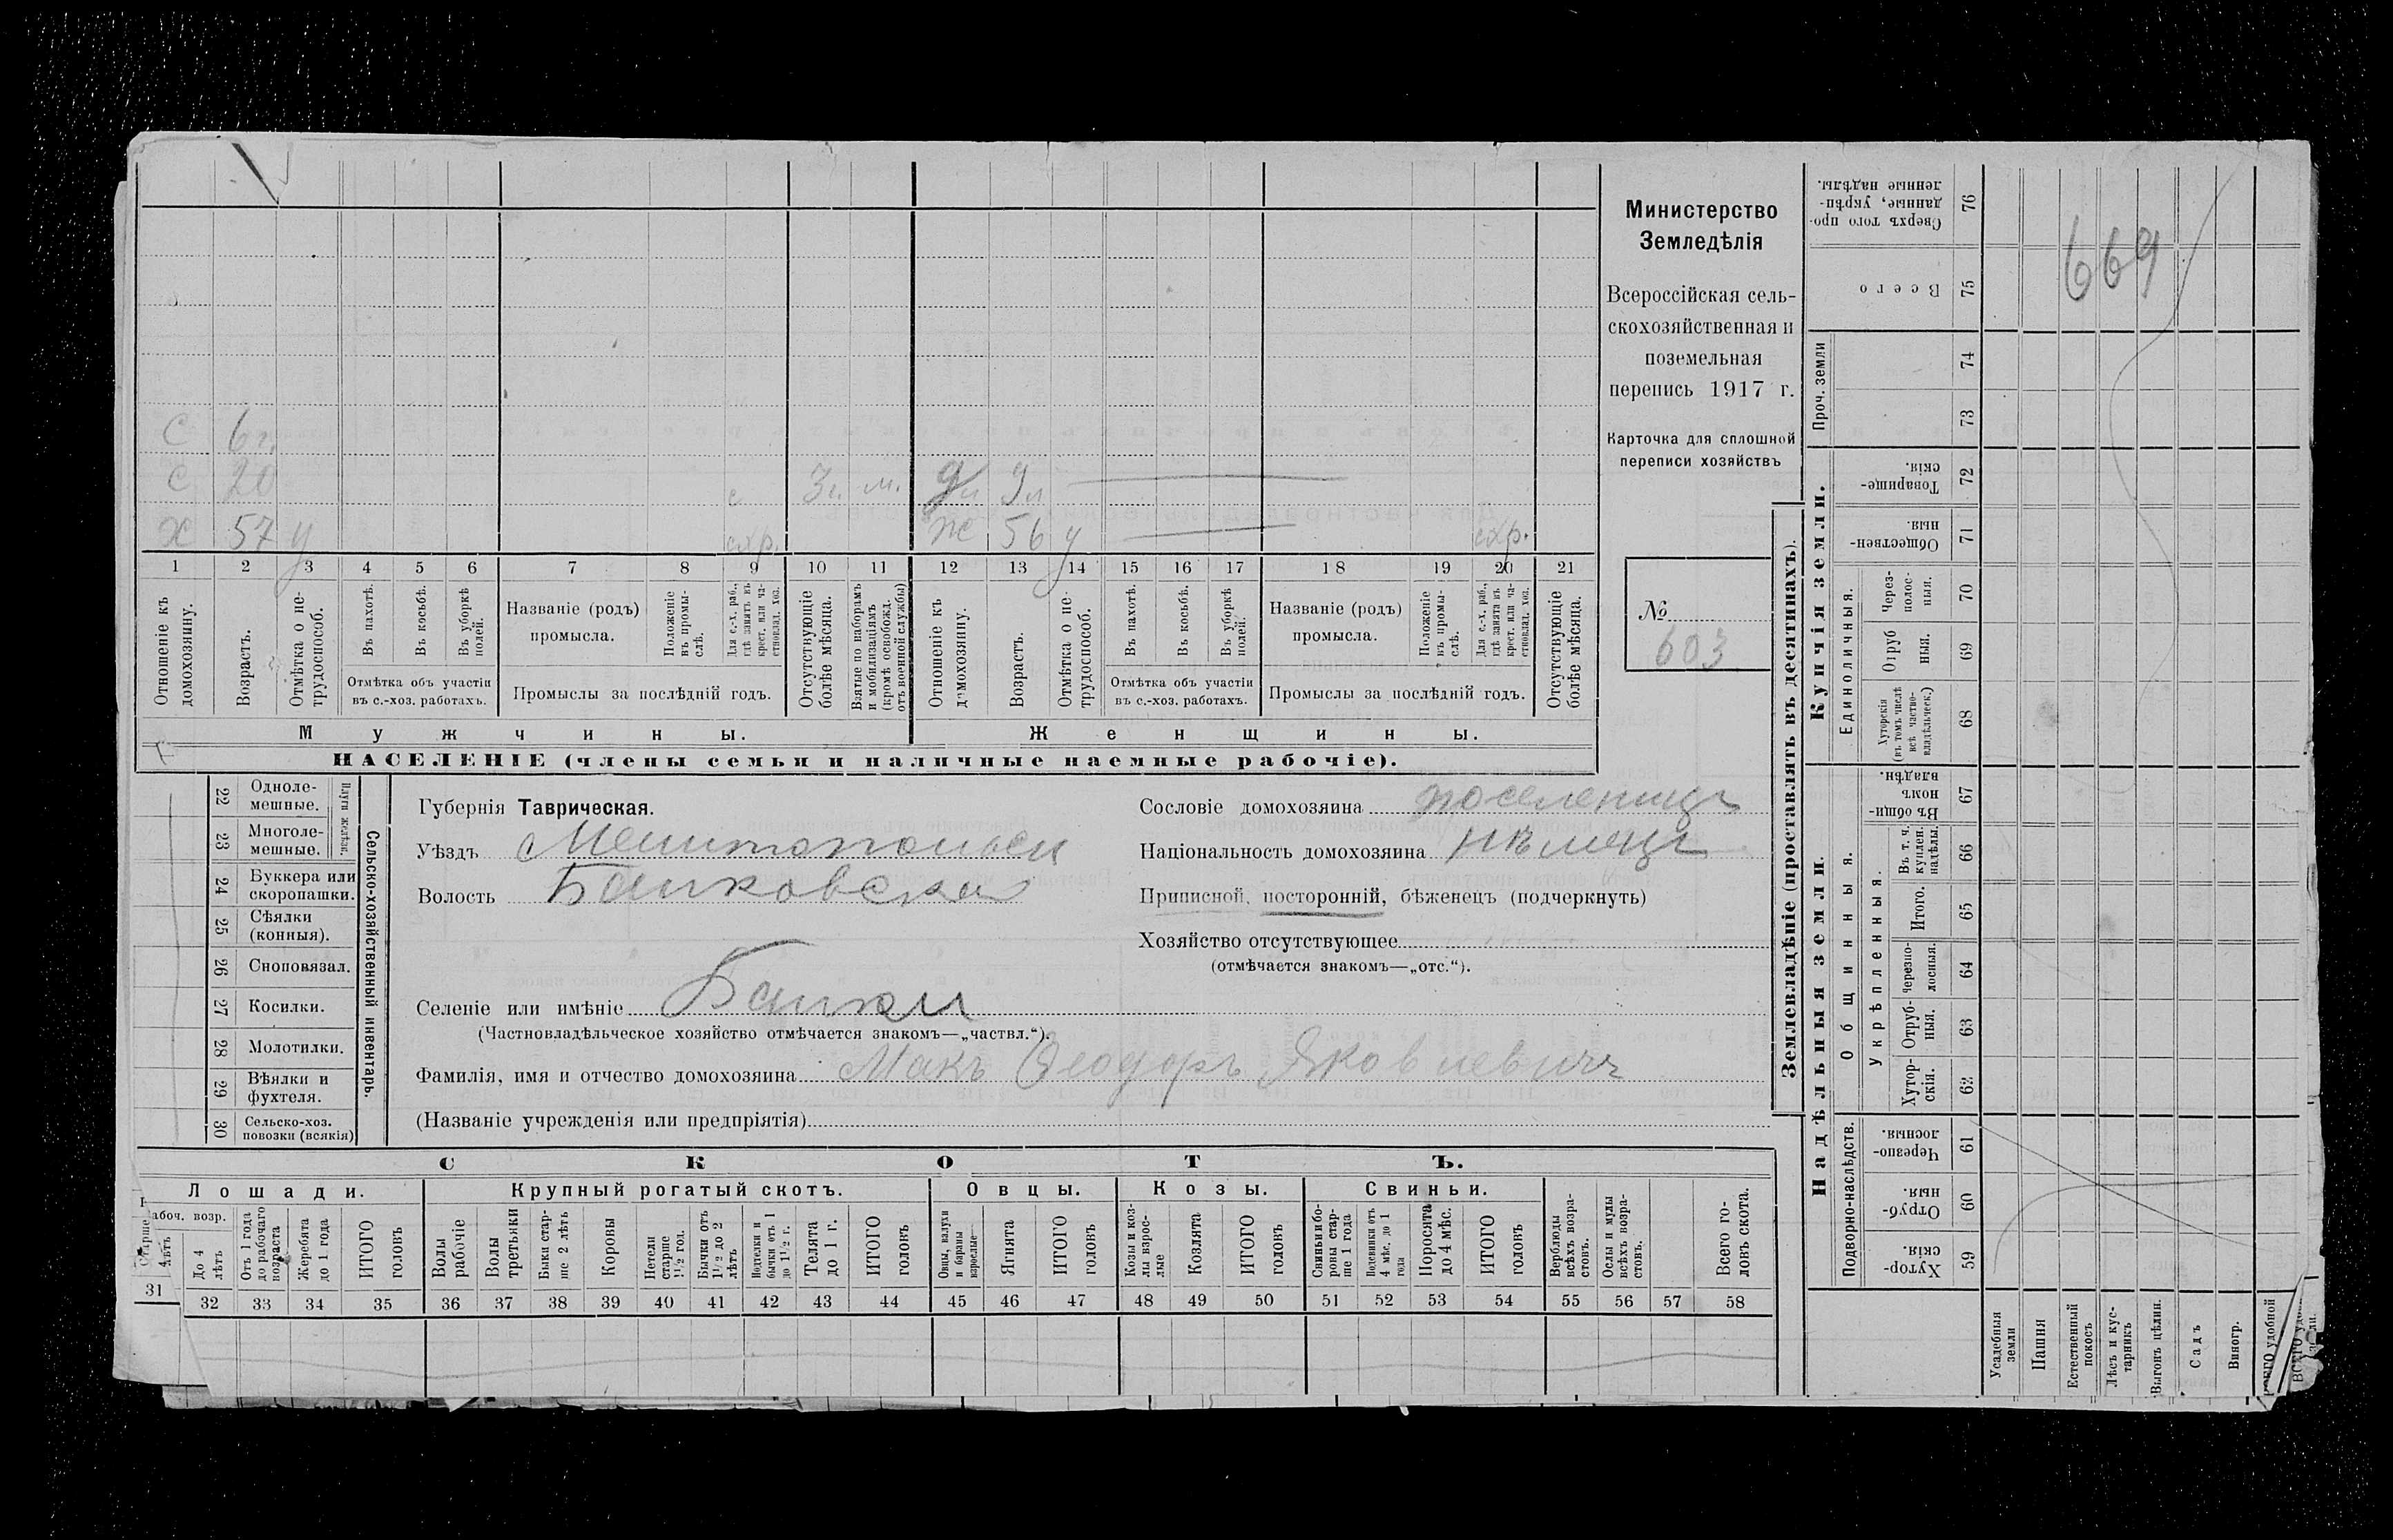 Министерство
Земледѣлія
Всероссійская сель-
скохозяйственная и
поземельная
перепись 1917 г.
Карточка для сплошной
переписи хозяйствъ
№
603
669
С 6 г.
С 20 с З. м. д 9 л
Х 57 у схр. Ж 56 у схр.
1 2 3 4 5 6 7 8 9 10 11 12 13 14 15 16 17 18 19 20 21
Отношеніе къ домохозяину.
Возрастъ.
Отмѣтка о не-трудоспособ.
Въ пахотѣ.
Въ косьбѣ.
Въ уборкѣ полей.
Отмѣтка объ участіи
въ с.-хоз. работахъ.
Названіе (родъ)
промысла.
Положеніе въ промы-слѣ.
Для с.-х. раб., гдѣ занятъ въ крест. или ча-стновлад. хоз.
Промыслы за послѣдній годъ.
Отсутствующіе болѣе мѣсяца.
Взятые по наборамъ и мобилизаціямъ (кромѣ освобожд. отъ военной службы)
Отношеніе къ домохозяину.
Возрастъ.
Отмѣтка о не-трудоспособ.
Въ пахотѣ.
Въ косьбѣ.
Въ уборкѣ полей.
Отмѣтка объ участіи
въ с.-хоз. работахъ.
Названіе (родъ)
промысла.
Положеніе въ промы-слѣ.
Для с.-х. раб., гдѣ занята въ крест. или ча-стновлад. хоз.
Промыслы за послѣдній годъ.
Отсутствующіе болѣе мѣсяца.
Мужчины. Женщины.
НАСЕЛЕНІЕ (члены семьи и наличные наемные рабочіе).
Сельско-хозяйственный инвентарь.
Плуги желѣзн.
22 Одноле-мешные.
23 Многоле-мешные.
24 Буккера или скоропашки.
25 Сѣялки (конныя).
26 Сноповязал.
27 Косилки.
28 Молотилки.
29 Вѣялки и фухтеля.
30 Сельско-хоз. повозки (всякія)
Губернія Таврическая.
Уѣздъ Мелитопольск
Волость Балковская
Селеніе или имѣніе Балки
(Частновладѣльческое хозяйство отмѣчается знакомъ—„частвл.“).
Фамилія, имя и отчество домохозяина Макъ Ѳеодоръ Яковлевичъ
(Названіе учрежденія или предпріятія)
Сословіе домохозяина поселенецъ
Національность домохозяина нѣмецъ
Приписной, посторонній, бѣженецъ (подчеркнуть)
Хозяйство отсутствующее
(отмѣчается знакомъ—„отс.“).
СКОТЪ.
Лошади. Крупный рогатый скотъ. Овцы. Козы. Свиньи.
Рабоч. возр.
Старше 4 лѣтъ
До 4 лѣтъ
Отъ 1 года до рабочаго возраста
Жеребята до 1 года
ИТОГО головъ
Волы рабочіе
Волы третьяки
Быки стар-ше 2 лѣтъ
Коровы
Нетели старше 1½ год.
Бычки отъ 1½ до 2 лѣтъ
Подтелки и бычки отъ 1 до 1½ г.
Телята до 1 г.
ИТОГО головъ
Овцы, валухи и бараны взрослые
Ягнята
ИТОГО головъ
Козы и коз-лы взрос-лые
Козлята
ИТОГО головъ
Свиньи и бо-ровы стар-ше 1 года
Подсвинки отъ 4 мѣс. до 1 года
Поросята до 4 мѣс.
ИТОГО головъ
Верблюды всѣхъ возра-стовъ.
Ослы и мулы всѣхъ возра-стовъ.
Всего го-ловъ скота.
31 32 33 34 35 36 37 38 39 40 41 42 43 44 45 46 47 48 49 50 51 52 53 54 55 56 57 58
Землевладѣніе (проставлять въ десятинахъ).
Купчія земли.
Надѣльныя земли.
Проч. земли
Единоличныя.
Общинныя.
Укрѣпленныя.
Подворно-наслѣдств.
Сверхъ того про-данные, укрѣп-ленные надѣлы. 76
Всего 75
74
73
Товарище-скія. 72
Обществен-ныя. 71
Через-полос-ныя. 70
Отруб-ныя. 69
Хуторскія (въ томъ числѣ всѣ частно-владѣльческ.) 68
Въ общин-номъ владѣн. 67
Въ т. ч. куплен. надѣлы. 66
Итого. 65
Черезпо-лосныя. 64
Отруб-ныя. 63
Хутор-скія. 62
Черезпо-лосныя. 61
Отруб-ныя. 60
Хутор-скія. 59
Усадебныя земли
Пашня
Естественный покосъ
Лѣсъ и кус-тарникъ
Выгонъ цѣлин.
Садъ
Виногр.